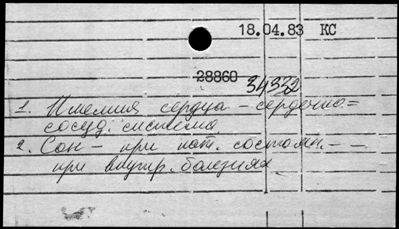 18.04.83 КС
28860 34332
1. Ишемия сердца - сердечно=
сосуд. система
2. Сон - при пат. состоян. - -
при внутр. болезнях